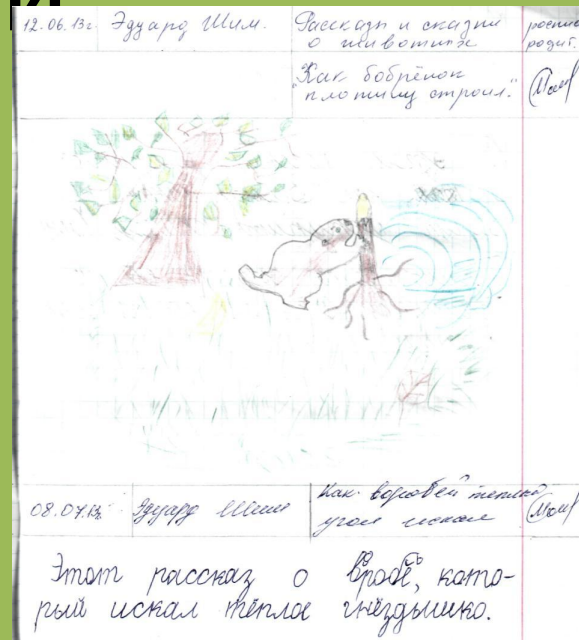 и
12.06.13г. Эдуард Шим. Рассказы и сказки о животных
роспись родит.
"Как бобрёнок
плотину строил."
08.07.13г. Эдуард Шим
Как воробей теплый
угол искал
Этот рассказ о
который искал тёплое гнёздышко.